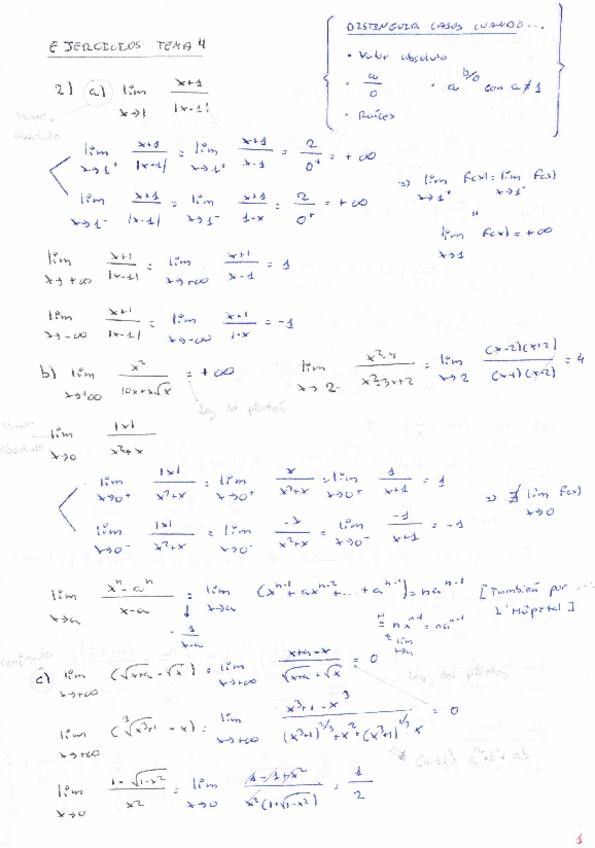 EJERCICIOS TEMA 4
DISTINGUIR CASOS CUANDO...
• Valor absoluto
• a/0 • a^(b/0) con a≠1
• Raíces
2) a) lim x→1 (x+1)/|x-1|
valor absoluto
lim x→1⁺ (x+1)/|x-1| = lim x→1⁺ (x+1)/(x-1) = 2/0⁺ = +∞
lim x→1⁻ (x+1)/|x-1| = lim x→1⁻ (x+1)/(1-x) = 2/0⁺ = +∞
⇒ lim x→1⁺ f(x) = lim x→1⁻ f(x)
"
lim x→1 f(x) = +∞
lim x→+∞ (x+1)/|x-1| = lim x→+∞ (x+1)/(x-1) = 1
lim x→-∞ (x+1)/|x-1| = lim x→-∞ (x+1)/(1-x) = -1
b) lim x→+∞ x²/(10x+x√x) = +∞
lim x→2 (x²-4)/(x²-3x+2) = lim x→2 (x-2)(x+2)/(x-1)(x-2) = 4
valor absoluto
lim x→0 |x|/(x²+x)
lim x→0⁺ |x|/(x²+x) = lim x→0⁺ x/(x²+x) = lim x→0⁺ 1/(x+1) = 1
lim x→0⁻ |x|/(x²+x) = lim x→0⁻ -x/(x²+x) = lim x→0⁻ -1/(x+1) = -1
⇒ ∄ lim x→0 f(x)
lim x→a (xⁿ-aⁿ)/(x-a) = lim x→a (xⁿ⁻¹+axⁿ⁻²+...+aⁿ⁻¹) = naⁿ⁻¹ [También por L'Hôpital]
· 1/(x-a)
= lim x→a nxⁿ⁻¹ = naⁿ⁻¹
c) lim x→+∞ (√(x+a) - √x) = lim x→+∞ (x+a-x)/(√(x+a)+√x) = 0
lim x→+∞ (∛(x³+1) - x) = lim x→+∞ (x³+1-x³)/((x³+1)^(2/3)+x²+(x³+1)^(1/3)x) = 0
lim x→0 (1-√(1-x²))/x² = lim x→0 (1-1+x²)/(x²(1+√(1-x²))) = 1/2
1